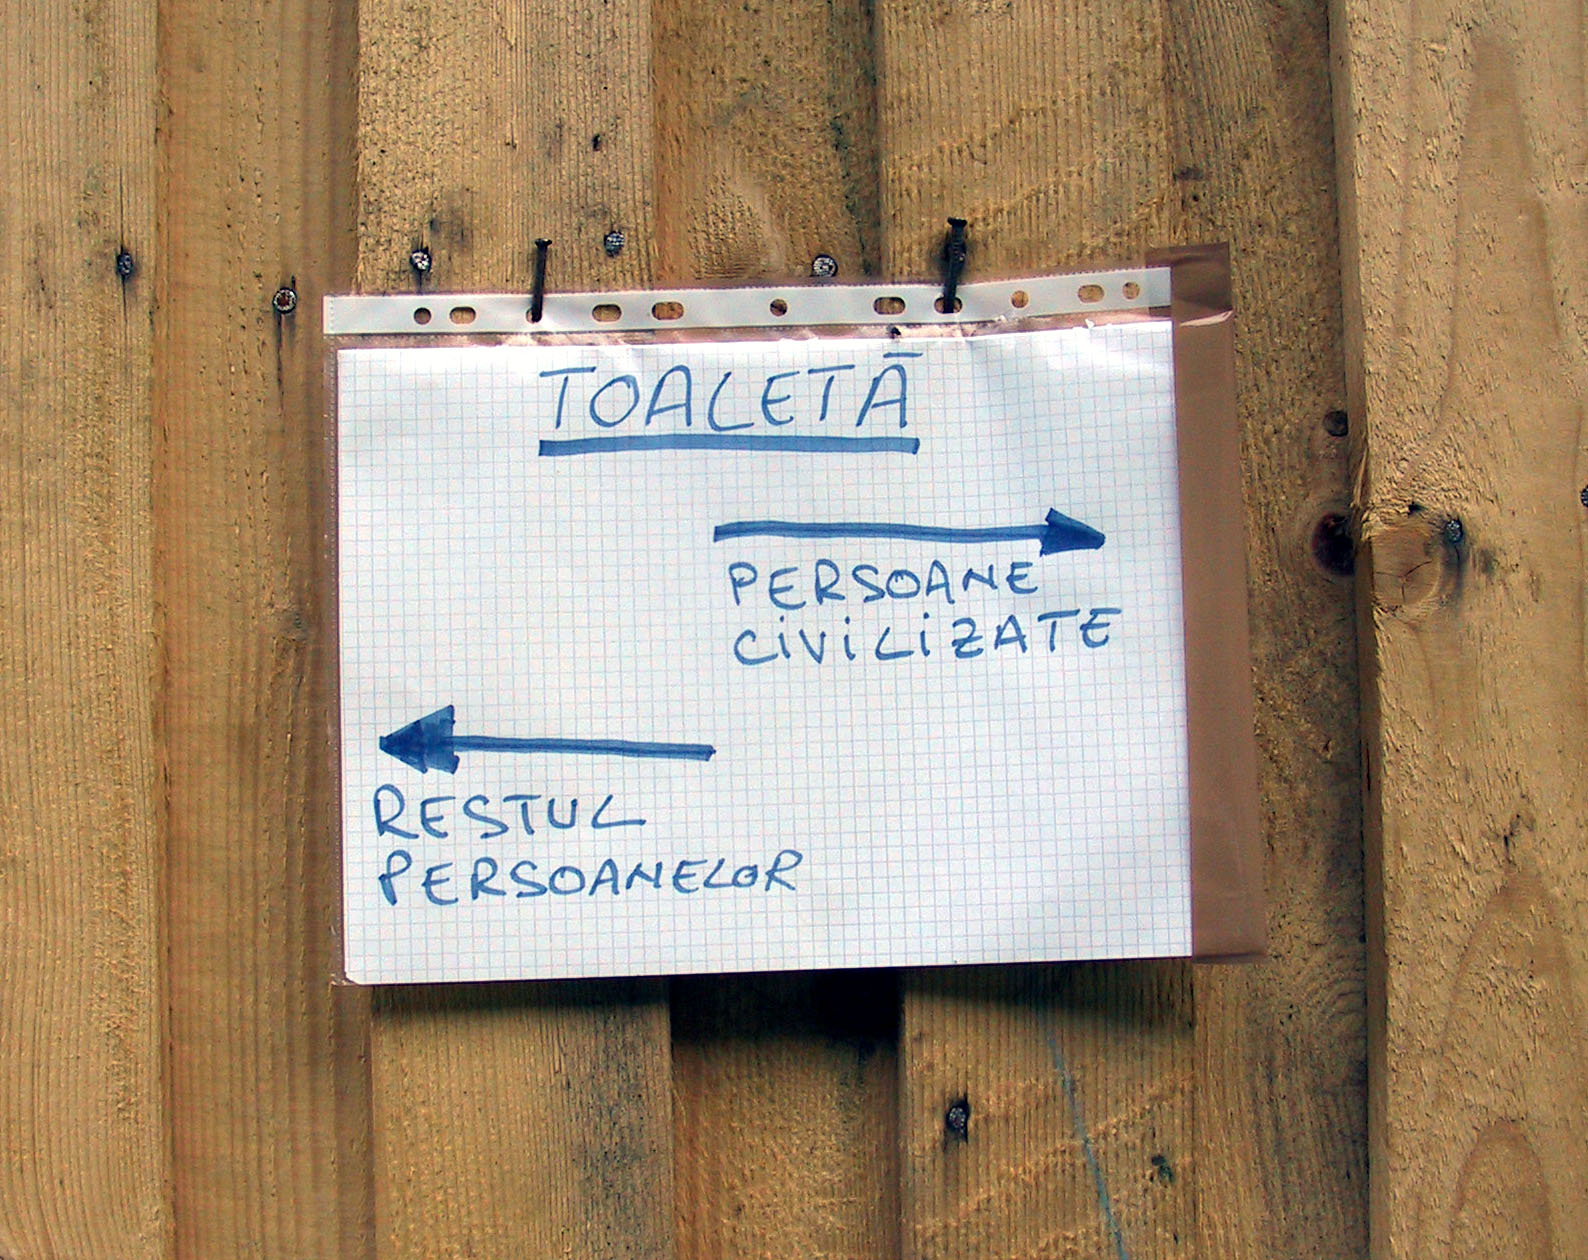 TOALETĀ
PERSOANE
CiViLiZATE
RESTUL
PERSOANELOR